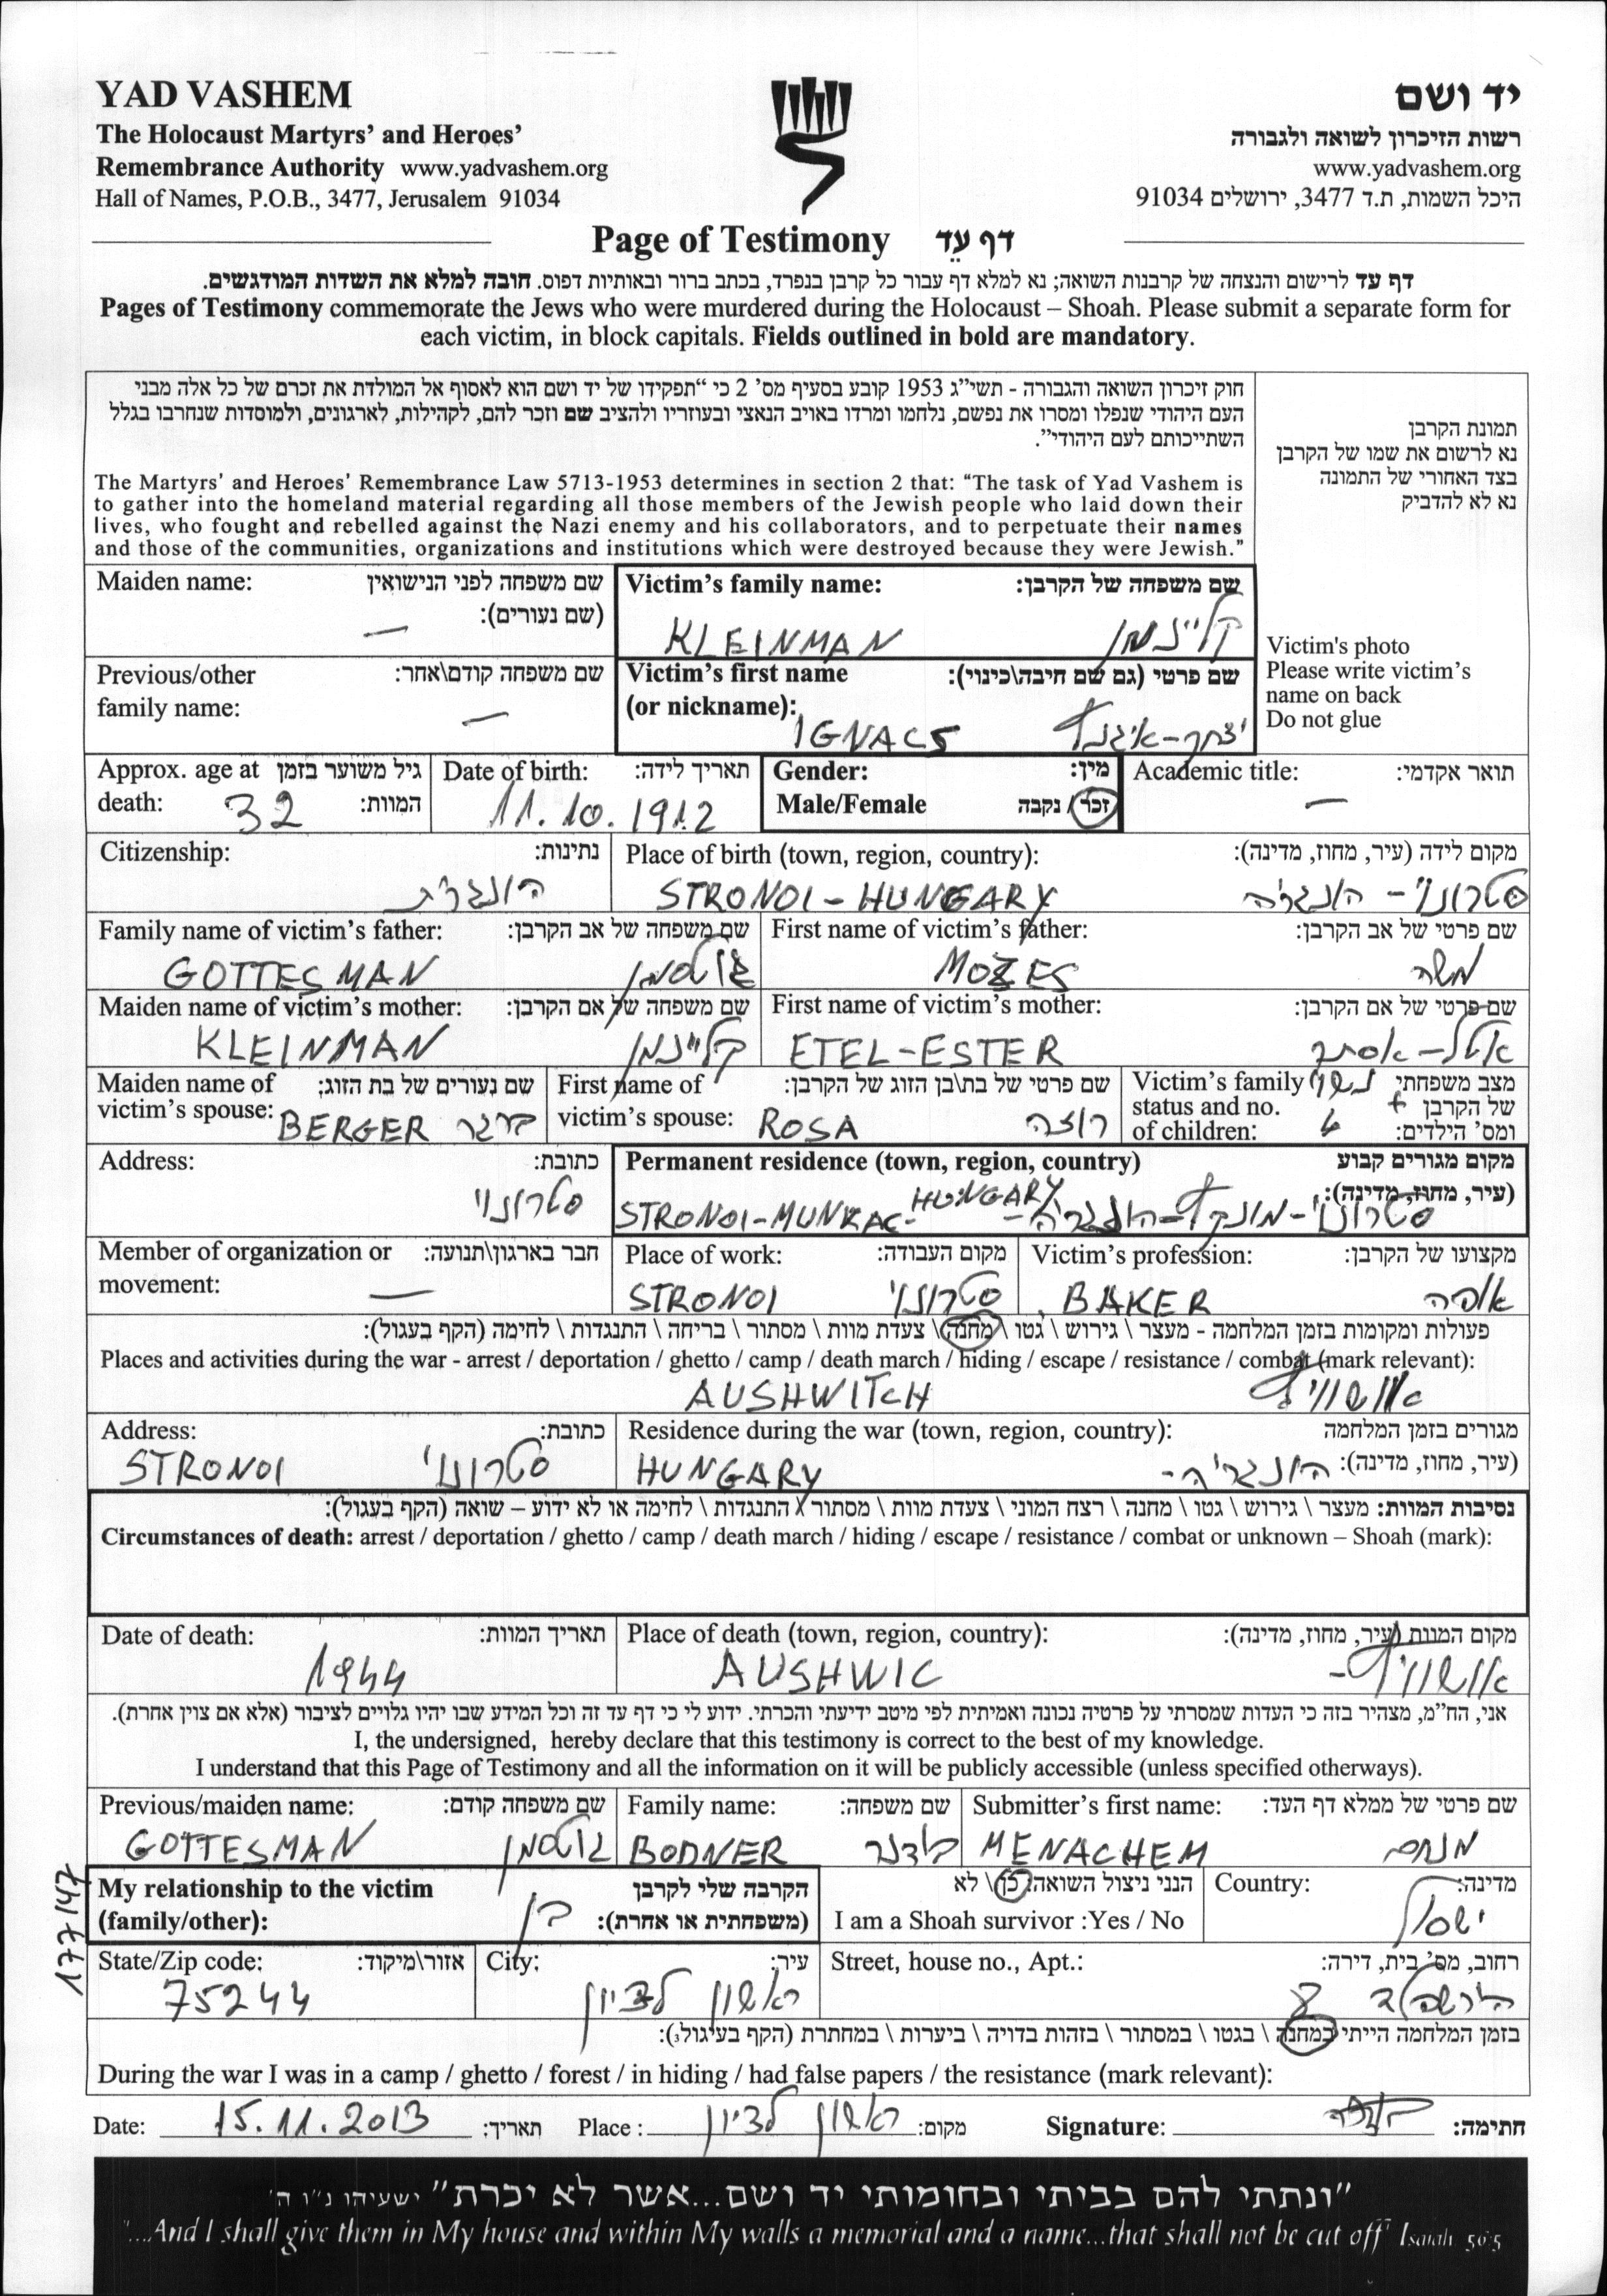 YAD VASHEM
יד ושם
The Holocaust Martyrs' and Heroes'
רשות הזיכרון לשואה ולגבורה
Remembrance Authority www.yadvashem.org
www.yadvashem.org
Hall of Names, P.O.B., 3477, Jerusalem 91034
היכל השמות, ת.ד 3477, ירושלים 91034
Page of Testimony דף עֵד
דף עד לרישום והנצחה של קרבנות השואה; נא למלא דף עבור כל קרבן בנפרד, בכתב ברור ובאותיות דפוס. חובה למלא את השדות המודגשים.
Pages of Testimony commemorate the Jews who were murdered during the Holocaust – Shoah. Please submit a separate form for
each victim, in block capitals. Fields outlined in bold are mandatory.
חוק זיכרון השואה והגבורה - תשי"ג 1953 קובע בסעיף מס' 2 כי "תפקידו של יד ושם הוא לאסוף אל המולדת את זכרם של כל אלה מבני
העם היהודי שנפלו ומסרו את נפשם, נלחמו ומרדו באויב הנאצי ובעוזריו ולהציב שם וזכר להם, לקהילות, לארגונים, ולמוסדות שנחרבו בגלל
השתייכותם לעם היהודי".
The Martyrs' and Heroes' Remembrance Law 5713-1953 determines in section 2 that: "The task of Yad Vashem is
to gather into the homeland material regarding all those members of the Jewish people who laid down their
lives, who fought and rebelled against the Nazi enemy and his collaborators, and to perpetuate their names
and those of the communities, organizations and institutions which were destroyed because they were Jewish."
תמונת הקרבן
נא לרשום את שמו של הקרבן
בצד האחורי של התמונה
נא לא להדביק
Victim's photo
Please write victim's
name on back
Do not glue
Maiden name: שם משפחה לפני הנישואין
(שם נעורים):
—
Victim's family name: שם משפחה של הקרבן:
KLEINMAN קליינמן
Previous/other שם משפחה קודם\אחר:
family name: —
Victim's first name שם פרטי (גם שם חיבה\כינוי):
(or nickname): IGNACS יצחק-איגנץ
Approx. age at גיל משוער בזמן
death: 32 המוות:
Date of birth: תאריך לידה:
11.10.1912
Gender: מין:
Male/Female זכר / נקבה
Academic title: תואר אקדמי:
—
Citizenship: נתינות:
הונגרית
Place of birth (town, region, country): מקום לידה (עיר, מחוז, מדינה):
STRONOI-HUNGARY סטרונוי-הונגריה
Family name of victim's father: שם משפחה של אב הקרבן:
GOTTESMAN גוטסמן
First name of victim's father: שם פרטי של אב הקרבן:
MOZES משה
Maiden name of victim's mother: שם משפחה של אם הקרבן:
KLEINMAN קליינמן
First name of victim's mother: שם פרטי של אם הקרבן:
ETEL-ESTER אטל-אסתר
Maiden name of שם נעורים של בת הזוג:
victim's spouse: BERGER ברגר
First name of שם פרטי של בת\בן הזוג של הקרבן:
victim's spouse: ROSA רוזה
Victim's family נשוי מצב משפחתי
status and no. + של הקרבן
of children: 4 ומס' הילדים:
Address: כתובת:
סטרונוי
Permanent residence (town, region, country) מקום מגורים קבוע
(עיר, מחוז, מדינה):
STRONOI-MUNKAC-HUNGARY סטרונוי-מונקץ-הונגריה-
Member of organization or חבר בארגון\תנועה:
movement: —
Place of work: מקום העבודה:
STRONOI סטרונוי
Victim's profession: מקצועו של הקרבן:
BAKER אופה
פעולות ומקומות בזמן המלחמה - מעצר \ גירוש \ גטו \ מחנה \ צעדת מוות \ מסתור \ בריחה \ התנגדות \ לחימה (הקף בעגול):
Places and activities during the war - arrest / deportation / ghetto / camp / death march / hiding / escape / resistance / combat (mark relevant):
AUSHWITCH אושוויץ
Address: כתובת:
STRONOI סטרונוי
Residence during the war (town, region, country): מגורים בזמן המלחמה
(עיר, מחוז, מדינה):
HUNGARY הונגריה-
נסיבות המוות: מעצר \ גירוש \ גטו \ מחנה \ רצח המוני \ צעדת מוות \ מסתור \ התנגדות \ לחימה או לא ידוע – שואה (הקף בעגול):
Circumstances of death: arrest / deportation / ghetto / camp / death march / hiding / escape / resistance / combat or unknown – Shoah (mark):
Date of death: תאריך המוות:
1944
Place of death (town, region, country): מקום המוות (עיר, מחוז, מדינה):
AUSHWIC אושוויץ-
אני, הח"מ, מצהיר בזה כי העדות שמסרתי על פרטיה נכונה ואמיתית לפי מיטב ידיעתי והכרתי. ידוע לי כי דף עד זה וכל המידע שבו יהיו גלויים לציבור (אלא אם צוין אחרת).
I, the undersigned, hereby declare that this testimony is correct to the best of my knowledge.
I understand that this Page of Testimony and all the information on it will be publicly accessible (unless specified otherways).
Previous/maiden name: שם משפחה קודם:
GOTTESMAN גוטסמן
Family name: שם משפחה:
BODNER בודנר
Submitter's first name: שם פרטי של ממלא דף העד:
MENACHEM מנחם
177147
My relationship to the victim הקרבה שלי לקרבן
(family/other): בן (משפחתית או אחרת):
הנני ניצול השואה: כן \ לא
I am a Shoah survivor :Yes / No
Country: מדינה:
ישראל
State/Zip code: אזור\מיקוד:
75244
City: עיר:
ראשון לציון
Street, house no., Apt.: רחוב, מס' בית, דירה:
8
בזמן המלחמה הייתי במחנה \ בגטו \ במסתור \ בזהות בדויה \ ביערות \ במחתרת (הקף בעיגול):
During the war I was in a camp / ghetto / forest / in hiding / had false papers / the resistance (mark relevant):
Date: 15.11.2013 תאריך: Place : ראשון לציון מקום: Signature: חתימה:
"ונתתי להם בביתי ובחומותי יד ושם...אשר לא יכרת" ישעיהו נ"ו ה'
"...And I shall give them in My house and within My walls a memorial and a name...that shall not be cut off" Isaiah 56:5